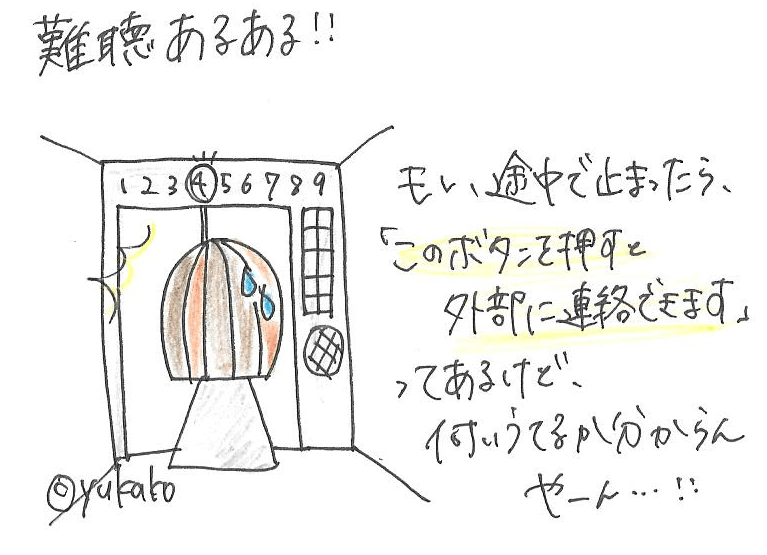 難聴あるある!!
1 2 3 4 5 6 7 8 9
もし、途中で止まったら、
「このボタンを押すと
外部に連絡できます」
ってあるけど、
何いうてるか分からん
やーん…!!
©yukako